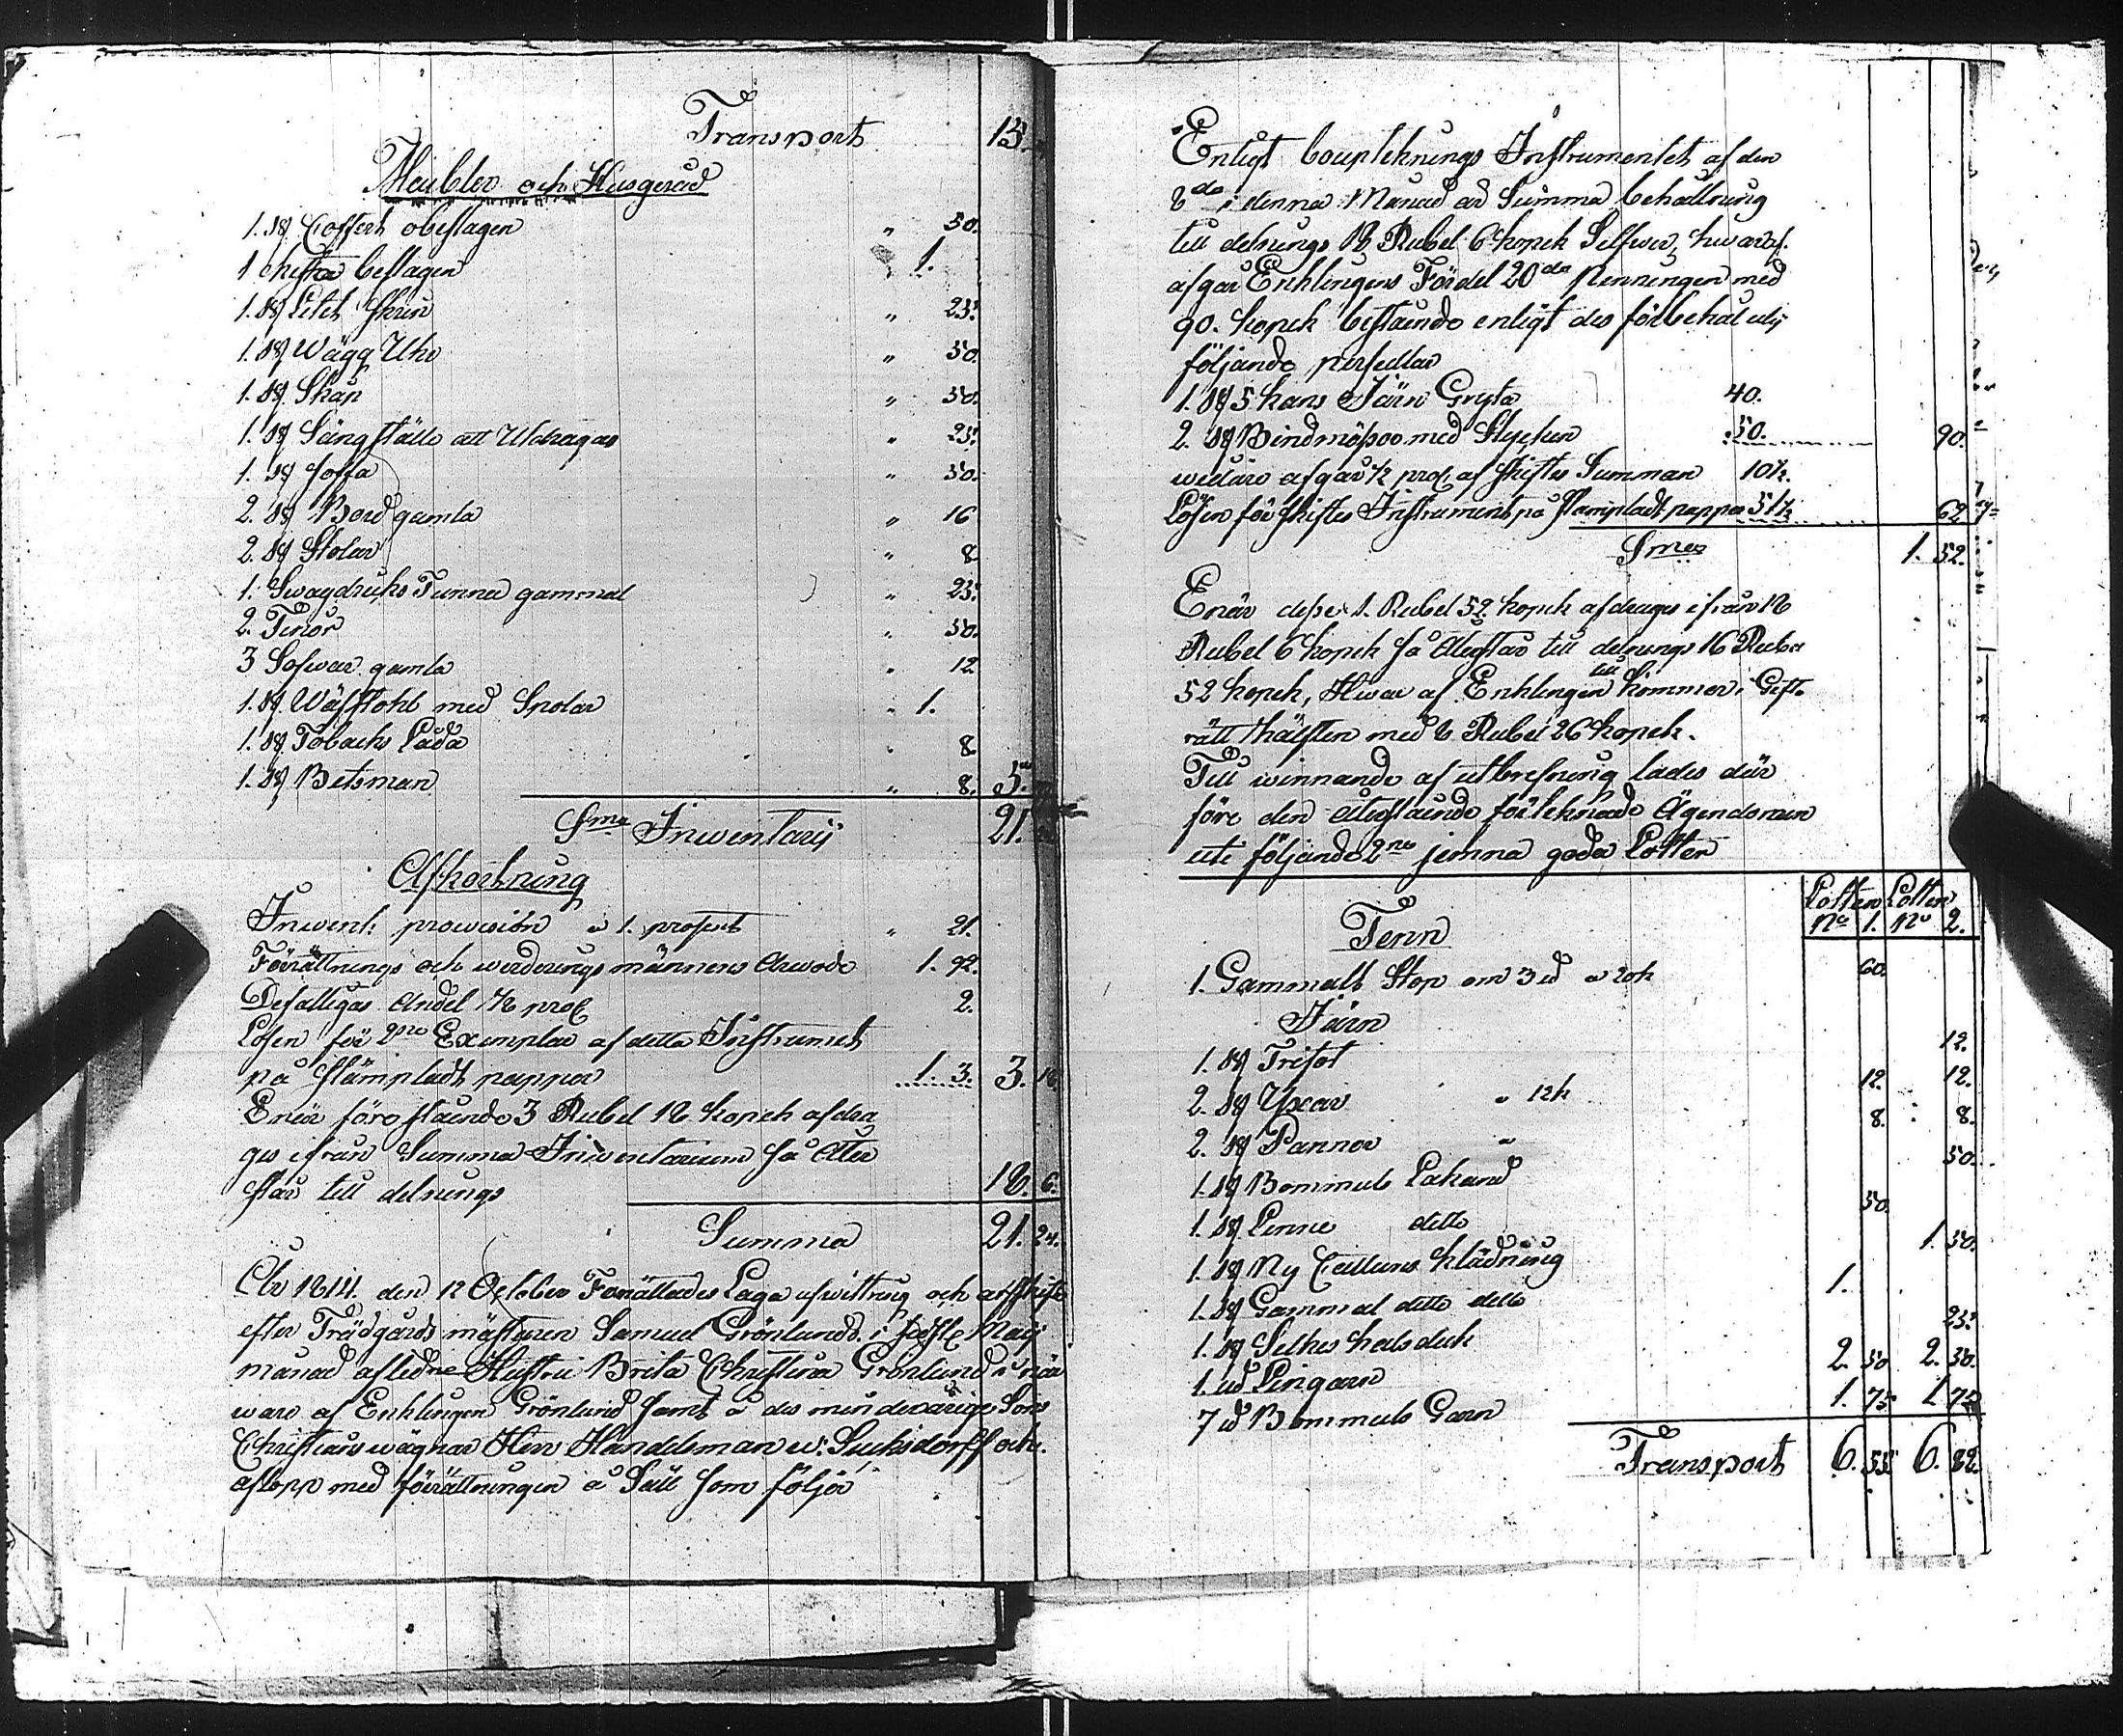 Transport 15.
Meubler och Husgeråd
1. st Coffert obeslagen " 50.
1 chista beslagen " 1.
1. st Litet Skrin " 25.
1. st Wägg Uhr " 50.
1. st Skåp " 50.
1. st Sängställe att Utdragas " 25.
1. st Soffa " 50.
2. st Bord gamla " 16
2. st Stolar " 8
1. Swagdricks Tunna gammal " 25.
2. Tinor " 50.
3 Sofwar gamla " 12
1. st Wäfstohl med Spolar " 1.
1. st Tobacks Låda " 8
1. st Betsman " 8. 5.
Sma Inventarij 21.
Afkortning
Invent: provision a 1. prosent " 21.
Förrättnings och werderings männens Arwode 1. 92.
De fattigas Andel 1/8 proc 2.
Lösen för 2ne Exemplar af detta Instrument
på stämpladt papper 1. 3. 3. 18
Enär före stående 3 Rubel 18 kopek afdra
ges ifrån Summa Inventarium så Åter
står till delnings 18. 6.
Summa 21. 24.
År 1841. den 12 October Förrättades Laga afwittring och arfskifte
efter Trädgårds mästaren Samuel Grönlunds i Maij
månad aflidne Hustru Brita Christina Grönlund i när
waro af Enklingen Grönlund samt å des minderårige Sons
Christians wägnar Herr Handelsman w: Sucksdorff och
aflopp med förrättningen å Sätt som följer
Enligt boupteknings Instrumentet af den
8de i denna Månad är Summa behållning
till delnings 18 Rubel 6 kopek Silfwer, hwaraf
afgår Enklingens Fördel 20de penningen med
90. kopek bestående enligt des förbehåll utj
följande persedlar
1. st 5 kans Järn Gryta 40.
2. st Bindmössor med Stycken 50. 90.
widare afgår 1/2 proc af skiftes Summan 10 k.
Lösen för skiftes Instrument på Stämpladt papper 51 k 62
Sma 1. 52.
Enär desse 1. Rubel 52 kopek afdrages ifrån 18
Rubel 6 kopek så Återstår till delnings 16 Rubel
52 kopek, Hwar af Enklingen till kommer i Gifto
rätt hälften med 8 Rubel 26 kopek.
Till winnande af utbrytning lades där
före den återstående förteknade Ägendomen
uti följande 2ne jemna goda Lotter
Lotten No 1. Lotten No 2.
Tenn
1. Gammalt Stop om 3 ℔ a 20 k 60.
Järn
1. st Trefot 12.
2. st Yxar a 12 k 12. 12.
2. st Pannor " 8. 8.
1. st Bommuls Lakand 50.
1. st Linne ditto 50.
1. st Ny Cattuns klädning 1. 50.
1. st Gammal ditto ditto 1.
1. st Silkes halsduk 25.
1. ℔ Lingarn 2. 50 2. 50.
7 ℔ Bommuls Garn 1. 75 1. 75
Transport 6. 55 6. 82.